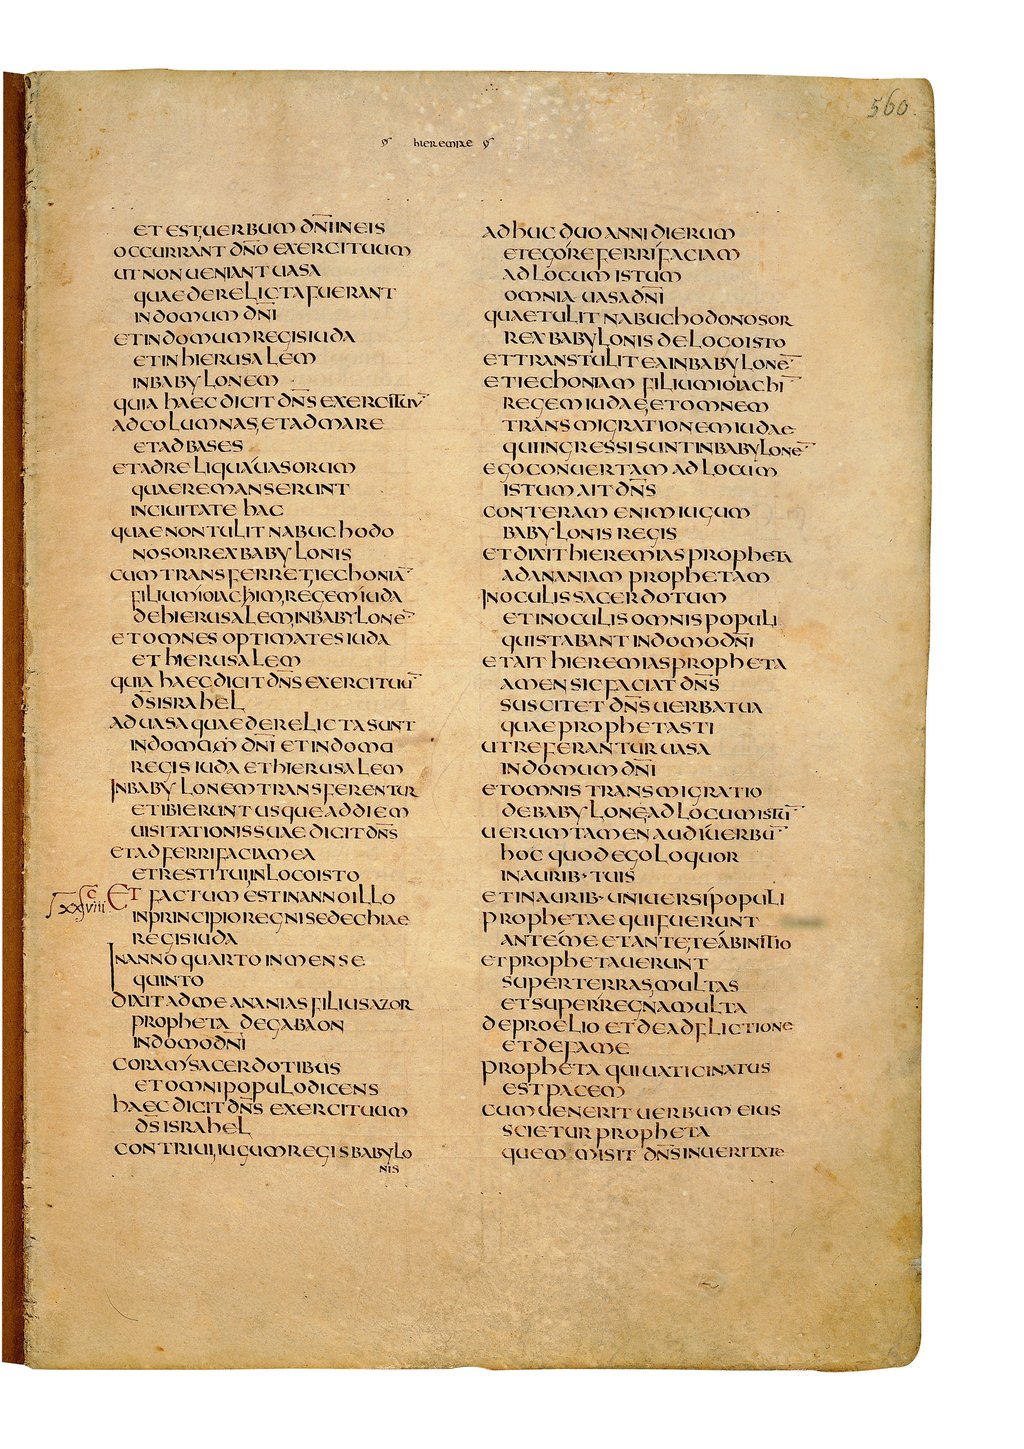 560
hieremiae
et est uerbum dn̄i in eis
occurrant dn̄o exercituum
ut non ueniant uasa
quae derelicta fuerant
in domum dn̄i
et in domum regis iuda
et in hierusalem
in babylonem
quia haec dicit dn̄s exercituū
ad columnas et ad mare
et ad bases
et ad reliqua uasorum
quae remanserunt
in ciuitate hac
quae non tulit nabuchodo
nosor rex babylonis
cum transferret iechoniā
filium ioiachim regem iuda
de hierusalem in babylonē
et omnes optimates iuda
et hierusalem
quia haec dicit dn̄s exercituū
ds̄ israhel
ad uasa quae derelicta sunt
in domum dn̄i et in domu
regis iuda et hierusalem
In babylonem transferentur
et ibi erunt usque ad diem
uisitationis suae dicit dn̄s
et adferri faciam ea
et restitui in loco isto
c̄ xxviii Et factum est in anno illo
in principio regni sedechiae
regis iuda
In anno quarto in mense
quinto
dixit ad me ananias filius azor
propheta de gabaon
in domo dn̄i
coram sacerdotibus
et omni populo dicens
haec dicit dn̄s exercituum
ds̄ israhel
contriui iugum regis babylo
nis
adhuc duo anni dierum
et ego referri faciam
ad locum istum
omnia uasa dn̄i
quae tulit nabuchodonosor
rex babylonis de loco isto
et transtulit ea in babylonē
et iechoniam filium ioiachī
regem iudae et omnem
transmigrationem iudae
qui ingressi sunt in babylonē
ego conuertam ad locum
istum ait dn̄s
conteram enim iugum
babylonis regis
et dixit hieremias propheta
ad ananiam prophetam
In oculis sacerdotum
et in oculis omnis populi
qui stabant in domo dn̄i
et ait hieremias propheta
amen sic faciat dn̄s
suscitet dn̄s uerba tua
quae prophetasti
ut referantur uasa
in domum dn̄i
et omnis transmigratio
de babylone ad locum istū
uerumtamen audi uerbū
hoc quod ego loquor
in aurib· tuis
et in aurib· uniuersi populi
prophetae qui fuerunt
ante me et ante te ab initio
et prophetauerunt
super terras multas
et super regna multa
de proelio et de adflictione
et de fame
propheta qui uaticinatus
est pacem
cum uenerit uerbum eius
scietur propheta
quem misit dn̄s in ueritate